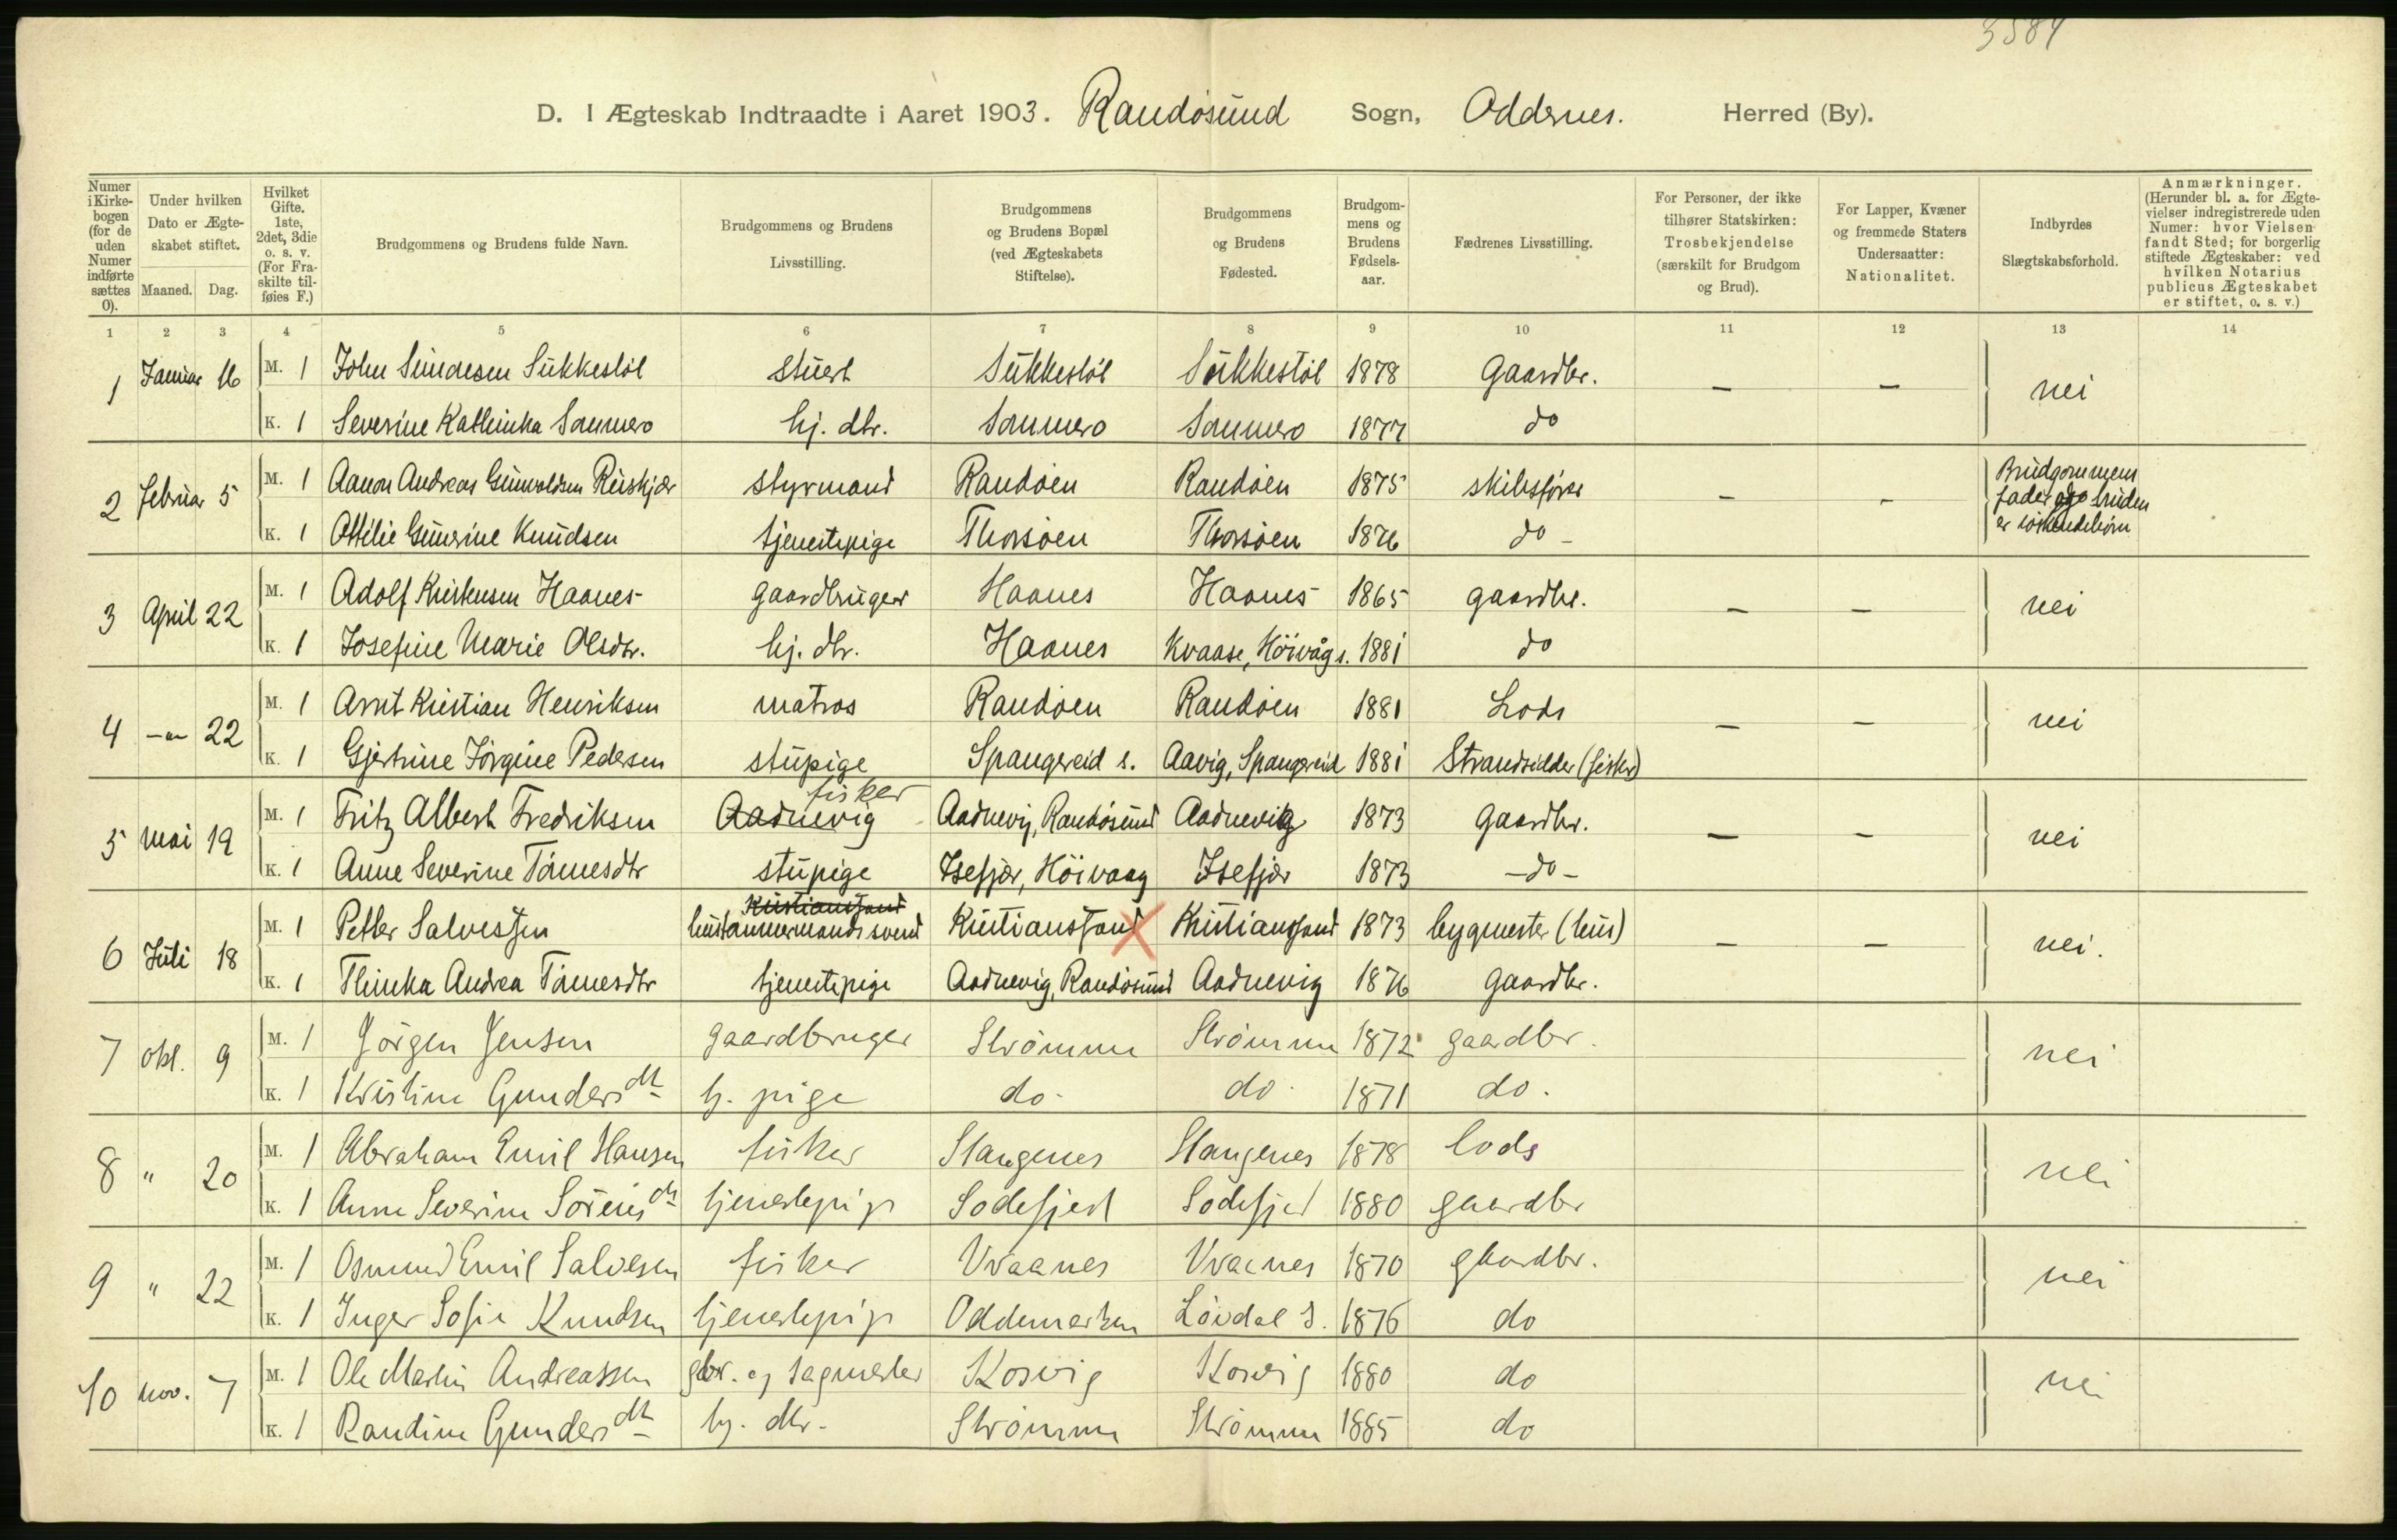 3584
D. I Ægteskab Indtraadte i Aaret 1903. Randøsund Sogn, Oddernes. Herred (By).
Numer i Kirkebogen (for de uden Numer indførte sættes 0). | Under hvilken Dato er Ægteskabet stiftet. Maaned. Dag. | Hvilket Gifte. 1ste, 2det, 3die o. s. v. (For Fraskilte tilføies F.) | Brudgommens og Brudens fulde Navn. | Brudgommens og Brudens Livsstilling. | Brudgommens og Brudens Bopæl (ved Ægteskabets Stiftelse). | Brudgommens og Brudens Fødested. | Brudgommens og Brudens Fødselsaar. | Fædrenes Livsstilling. | For Personer, der ikke tilhører Statskirken: Trosbekjendelse (særskilt for Brudgom og Brud). | For Lapper, Kvæner og fremmede Staters Undersaatter: Nationalitet. | Indbyrdes Slægtskabsforhold. | Anmærkninger. (Herunder bl. a. for Ægtevielser indregistrerede uden Numer: hvor Vielsen fandt Sted; for borgerlig stiftede Ægteskaber: ved hvilken Notarius publicus Ægteskabet er stiftet, o. s. v.)
1 2 3 4 5 6 7 8 9 10 11 12 13 14
1 Januar 16 M. 1 John Sundesen Sukkestøl stuert Sukkestøl Sukkestøl 1878 Gaardbr. — — nei
K. 1 Severine Kathinka Sommero hj. dtr. Sommero Sommero 1877 do
2 februar 5 M. 1 Aanon Andreas Gunvoldsen Reiskjær styrmand Randøen Randøen 1875 skibsfører — — Brudgommens fader og bruden er søskendebørn
K. 1 Ottilie Gunerine Knudsen tjenestepige Thorsøen Thorsøen 1876 do -
3 April 22 M. 1 Adolf Kristensen Haanes gaardbruger Haanes Haanes 1865 gaardbr. — — nei
K. 1 Josefine Marie Olsdtr. hj. dtr. Haanes Kvaase, Höivåg s. 1881 do
4 -„- 22 M. 1 Arnt Kristian Henriksen matros Randøen Randøen 1881 Lods — — nei
K. 1 Gjertrine Jörgine Pedersen stupige Spangereid s. Aavig, Spangereid 1881 Strandsidder (fisker)
5 mai 19 M. 1 Fritz Albert Fredriksen Aadnevig fisker Aadnevig, Randøsund Aadnevig 1873 Gaardbr. — — nei
K. 1 Anne Severine Tømesdtr stupige Isefjær, Höivaag Isefjær 1873 -do-
6 Juli 18 M. 1 Petter Salvesen Kristianssand hustømmermandssvend Kristianssand Kristianssand 1873 bygmester (hus) — — nei.
K. 1 Thinka Andrea Tømesdtr tjenestepige Aadnevig, Randøsund Aadnevig 1876 Gaardbr.
7 okt. 9 M. 1 Jörgen Jensen gaardbruger Strømme Strømme 1872 gaardbr. nei
K. 1 Kristine Gundersdtr hj. pige do. do. 1871 do.
8 " 20 M. 1 Abraham Emil Hansen fisker Stangenes Stangenes 1878 lods nei
K. 1 Anne Severine Sörensdtr tjenestepige Sodefjed Sodefjed 1880 gaardbr
9 " 22 M. 1 Osmund Emil Salvesen fisker Vraanes Vraanes 1870 gaardbr. nei
K. 1 Inger Sofie Knudsen tjenestepige Oddemarken Løvdal s. 1876 do
10 nov. 7 M. 1 Ole Martin Andreassen gbr. og sagmester Korsvig Korsvig 1880 do nei
K. 1 Randine Gundersdtr hj. dtr. Strømme Strømme 1885 do